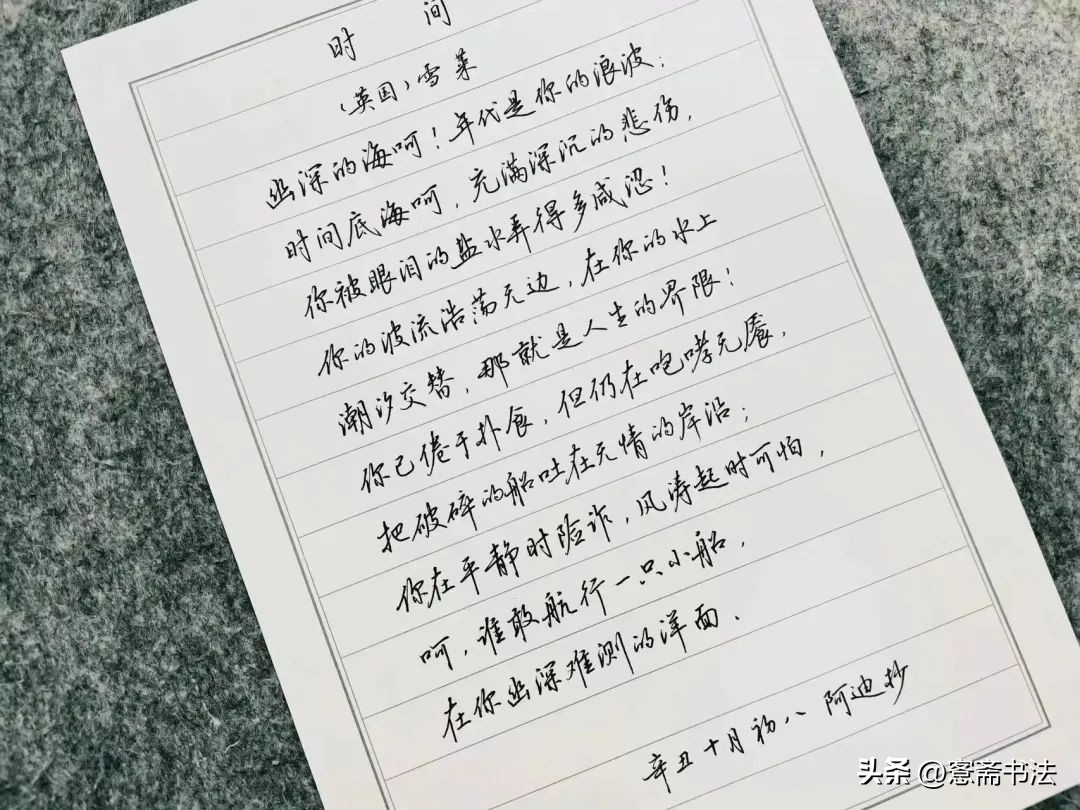 时 间
（英国）雪莱
幽深的海呵！年代是你的浪波；
时间底海呵，充满深沉的悲伤，
你被眼泪的盐水弄得多咸涩！
你的波流浩荡无边，在你的水上
潮汐交替，那就是人生的界限！
你已倦于扑食，但仍在咆哮无餍，
把破碎的船吐在无情的岸沿；
你在平静时险诈，风涛起时可怕，
呵，谁敢航行一只小船，
在你幽深难测的洋面．
辛丑十月初八 阿迪抄
头条 @窓斋书法